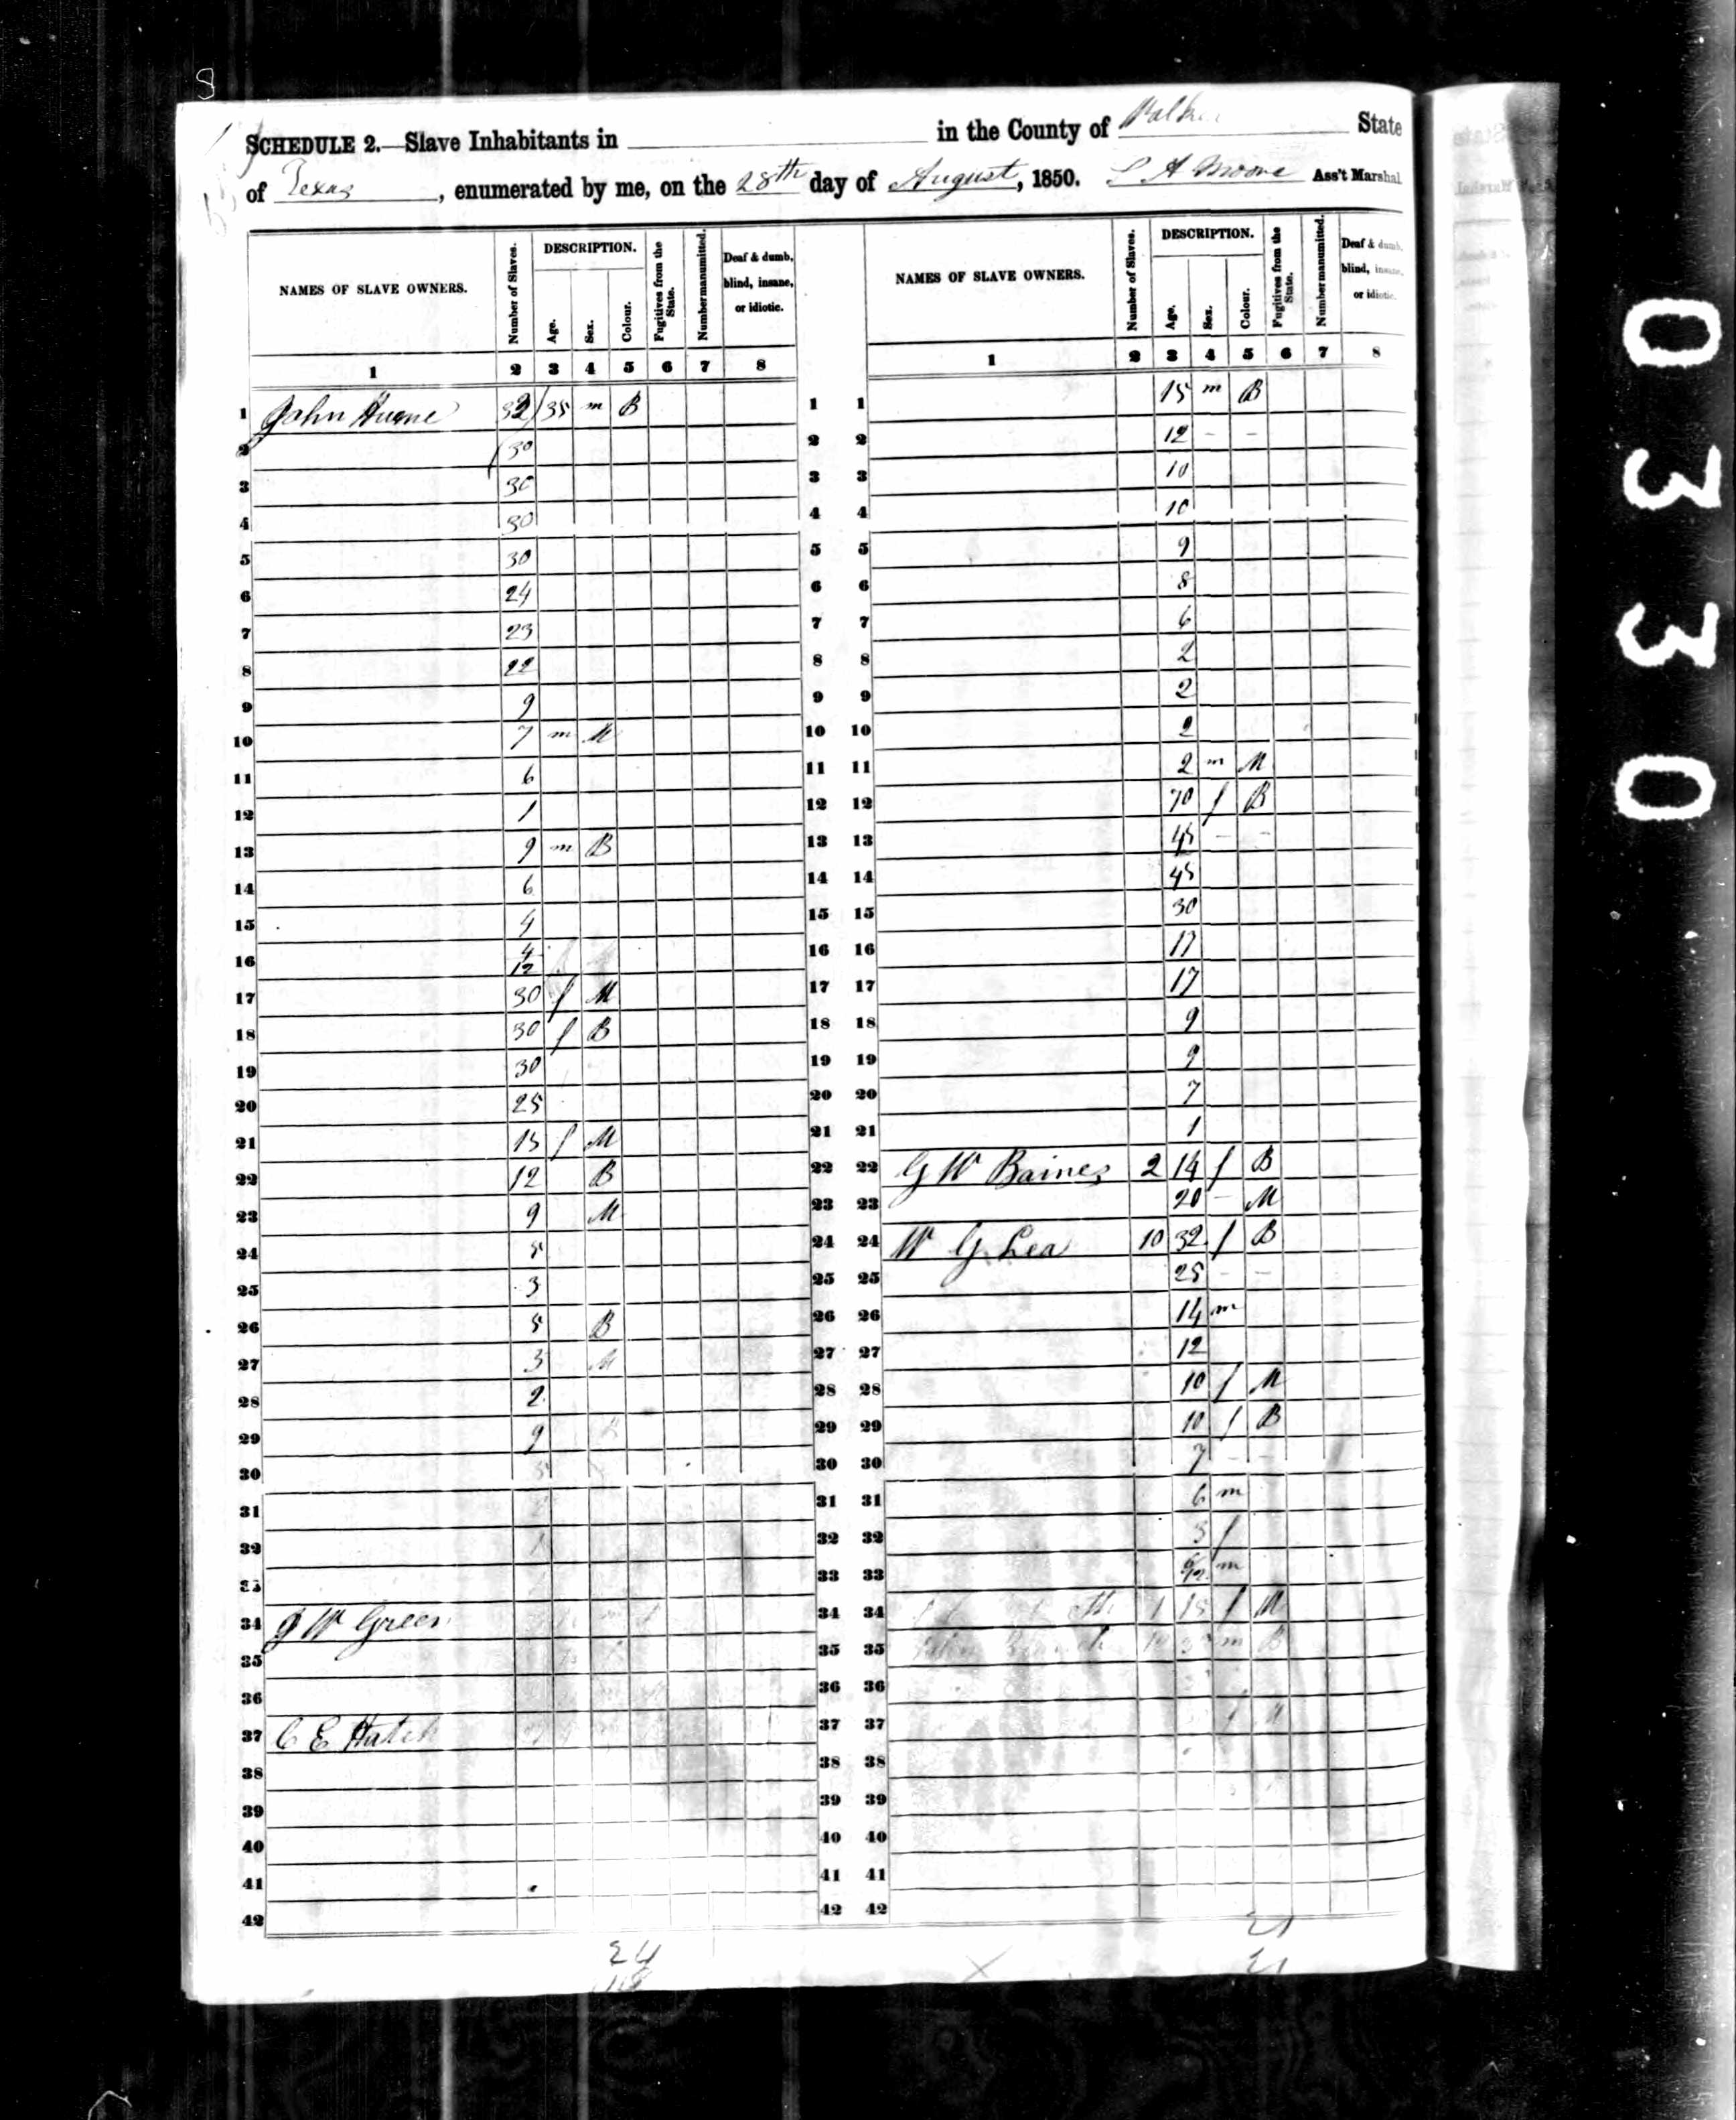 SCHEDULE 2.—Slave Inhabitants in in the County of State
of Texas, enumerated by me, on the 28th day of August, 1850. S A Moore Ass't Marshal
NAMES OF SLAVE OWNERS. Number of Slaves. DESCRIPTION. Age. Sex. Colour. Fugitives from the State. Number manumitted. Deaf & dumb, blind, insane, or idiotic. NAMES OF SLAVE OWNERS. Number of Slaves. DESCRIPTION. Age. Sex. Colour. Fugitives from the State. Number manumitted. Deaf & dumb, blind, insane, or idiotic.
1 2 3 4 5 6 7 8 1 2 3 4 5 6 7 8
1 John 32 35 m B 1 1 15 m B
2 30 2 2 12 - -
3 30 3 3 10
4 30 4 4 10
5 30 5 5 9
6 24 6 6 8
7 23 7 7 6
8 22 8 8 2
9 9 9 9 2
10 7 m M 10 10 2
11 6 11 11 2 m M
12 1 12 12 70 f B
13 9 m B 13 13 45 - -
14 6 14 14 45
15 4 15 15 30
16 4/12 16 16 17
17 30 f M 17 17 17
18 30 f B 18 18 9
19 30 19 19 9
20 25 20 20 7
21 15 f M 21 21 1
22 12 B 22 22 G W Baines 2 14 f B
23 9 M 23 23 20 - M
24 5 24 24 W G Lea 10 32 f B
25 3 25 25 25 - -
26 5 B 26 26 14 m
27 3 M 27 27 12
28 2 28 28 10 f M
29 9 29 29 10 f B
30 30 30 7 - -
31 31 31 6 m
32 32 32 3 f
33 33 33 6/12 m
34 J W Green 34 34 1 15 f M
35 35 35 m B
36 36 36
37 C E Hatch 37 37
38 38 38
39 39 39
40 40 40
41 41 41
42 42 42
24 21
118 21
0330